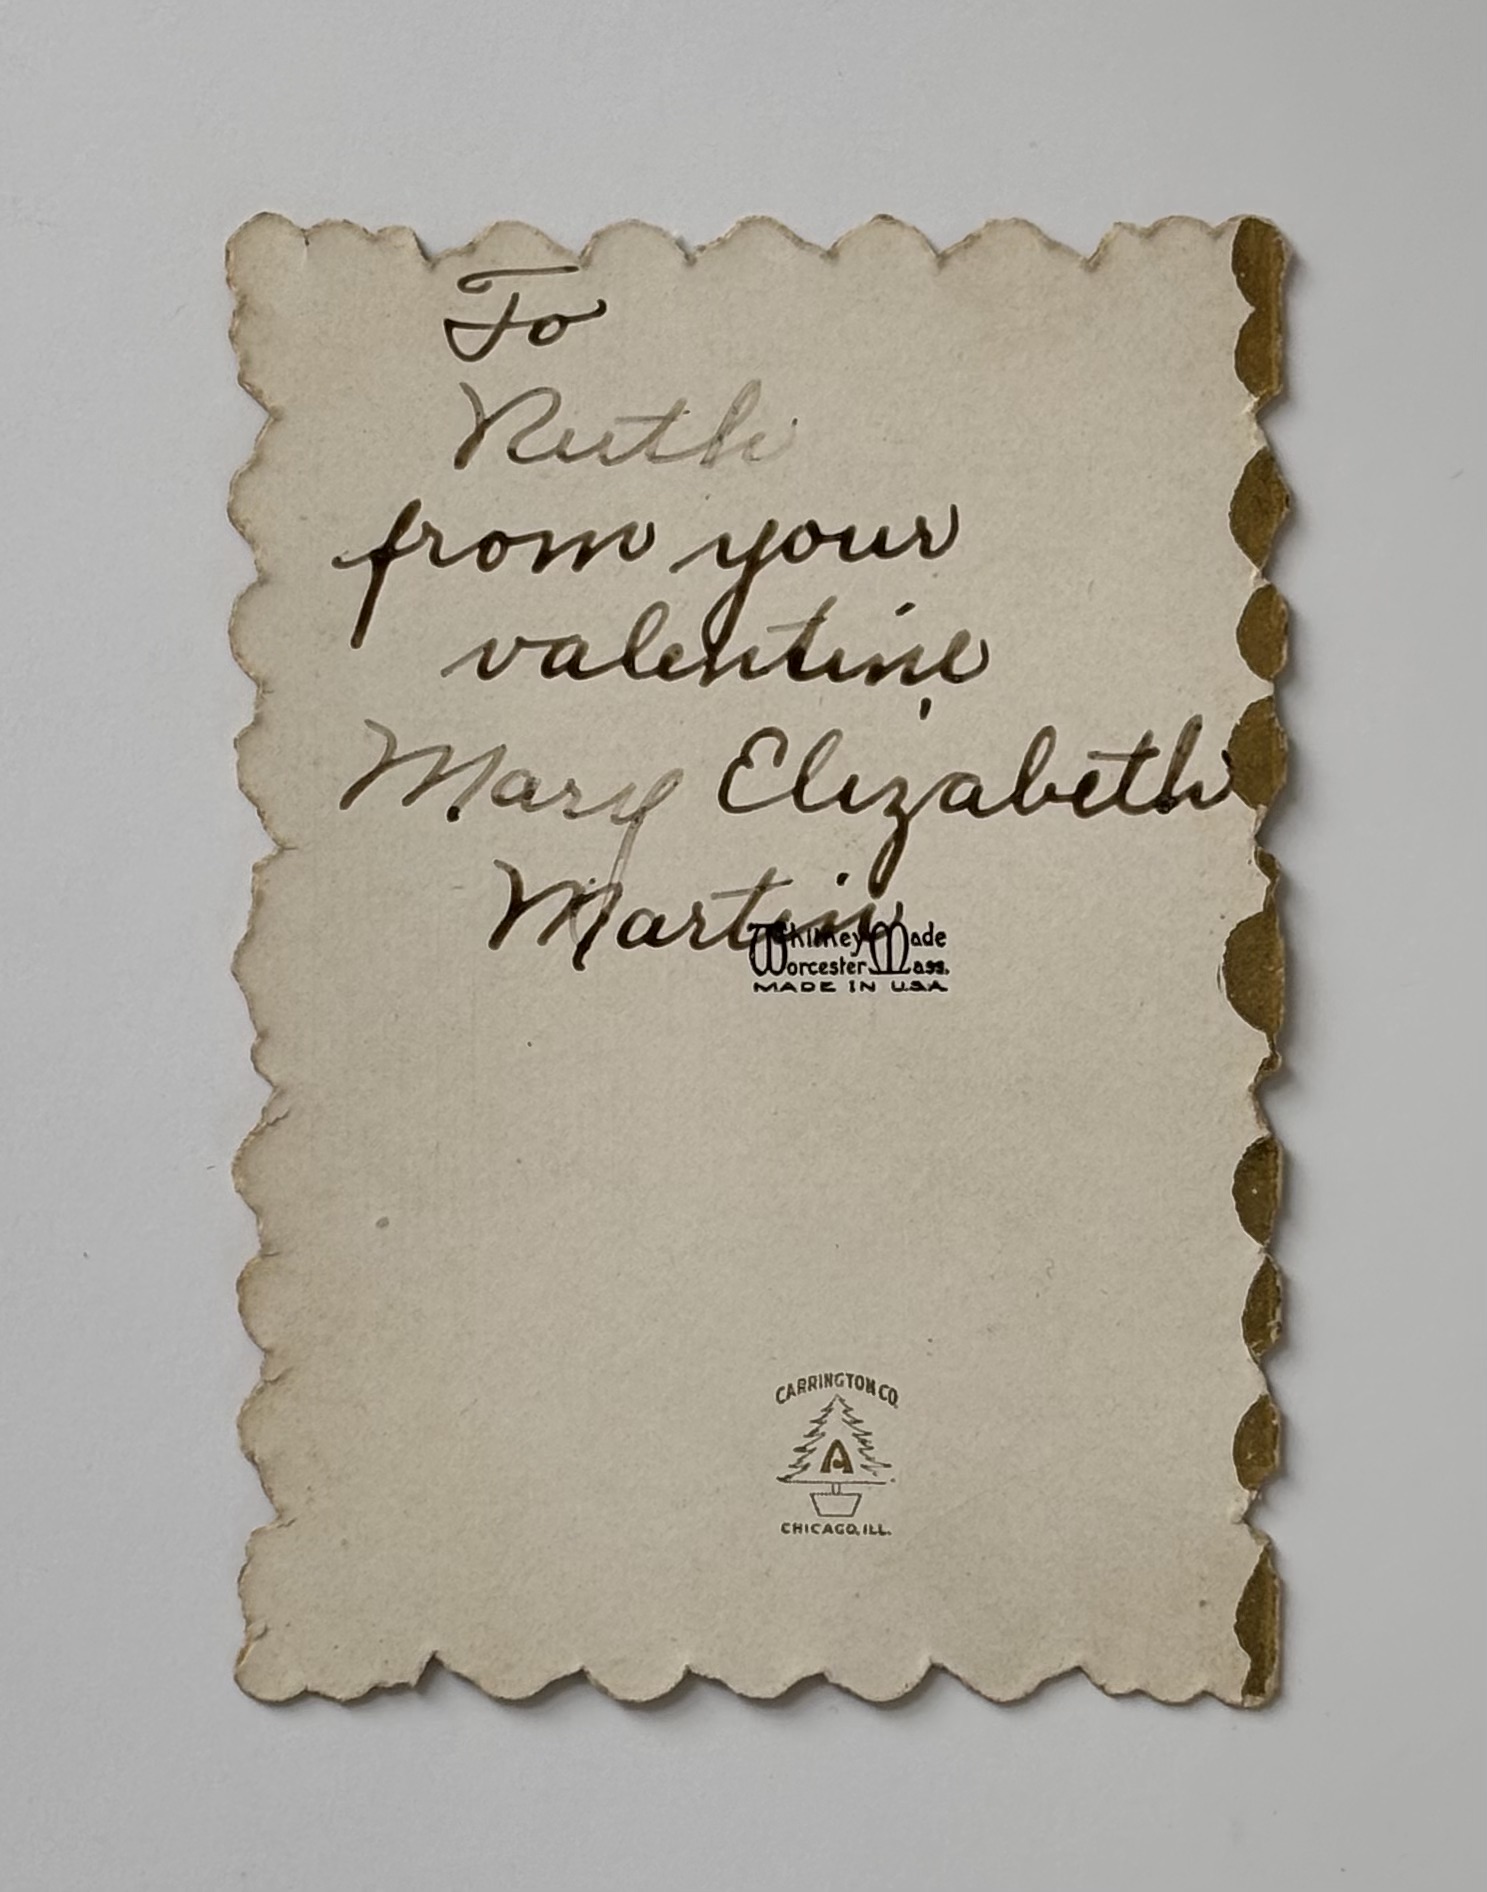 To
Ruth
from your
valentine
Mary Elizabeth
Martin
Whitney Made
Worcester Mass.
MADE IN U.S.A.
CARRINGTON CO.
A
CHICAGO, ILL.